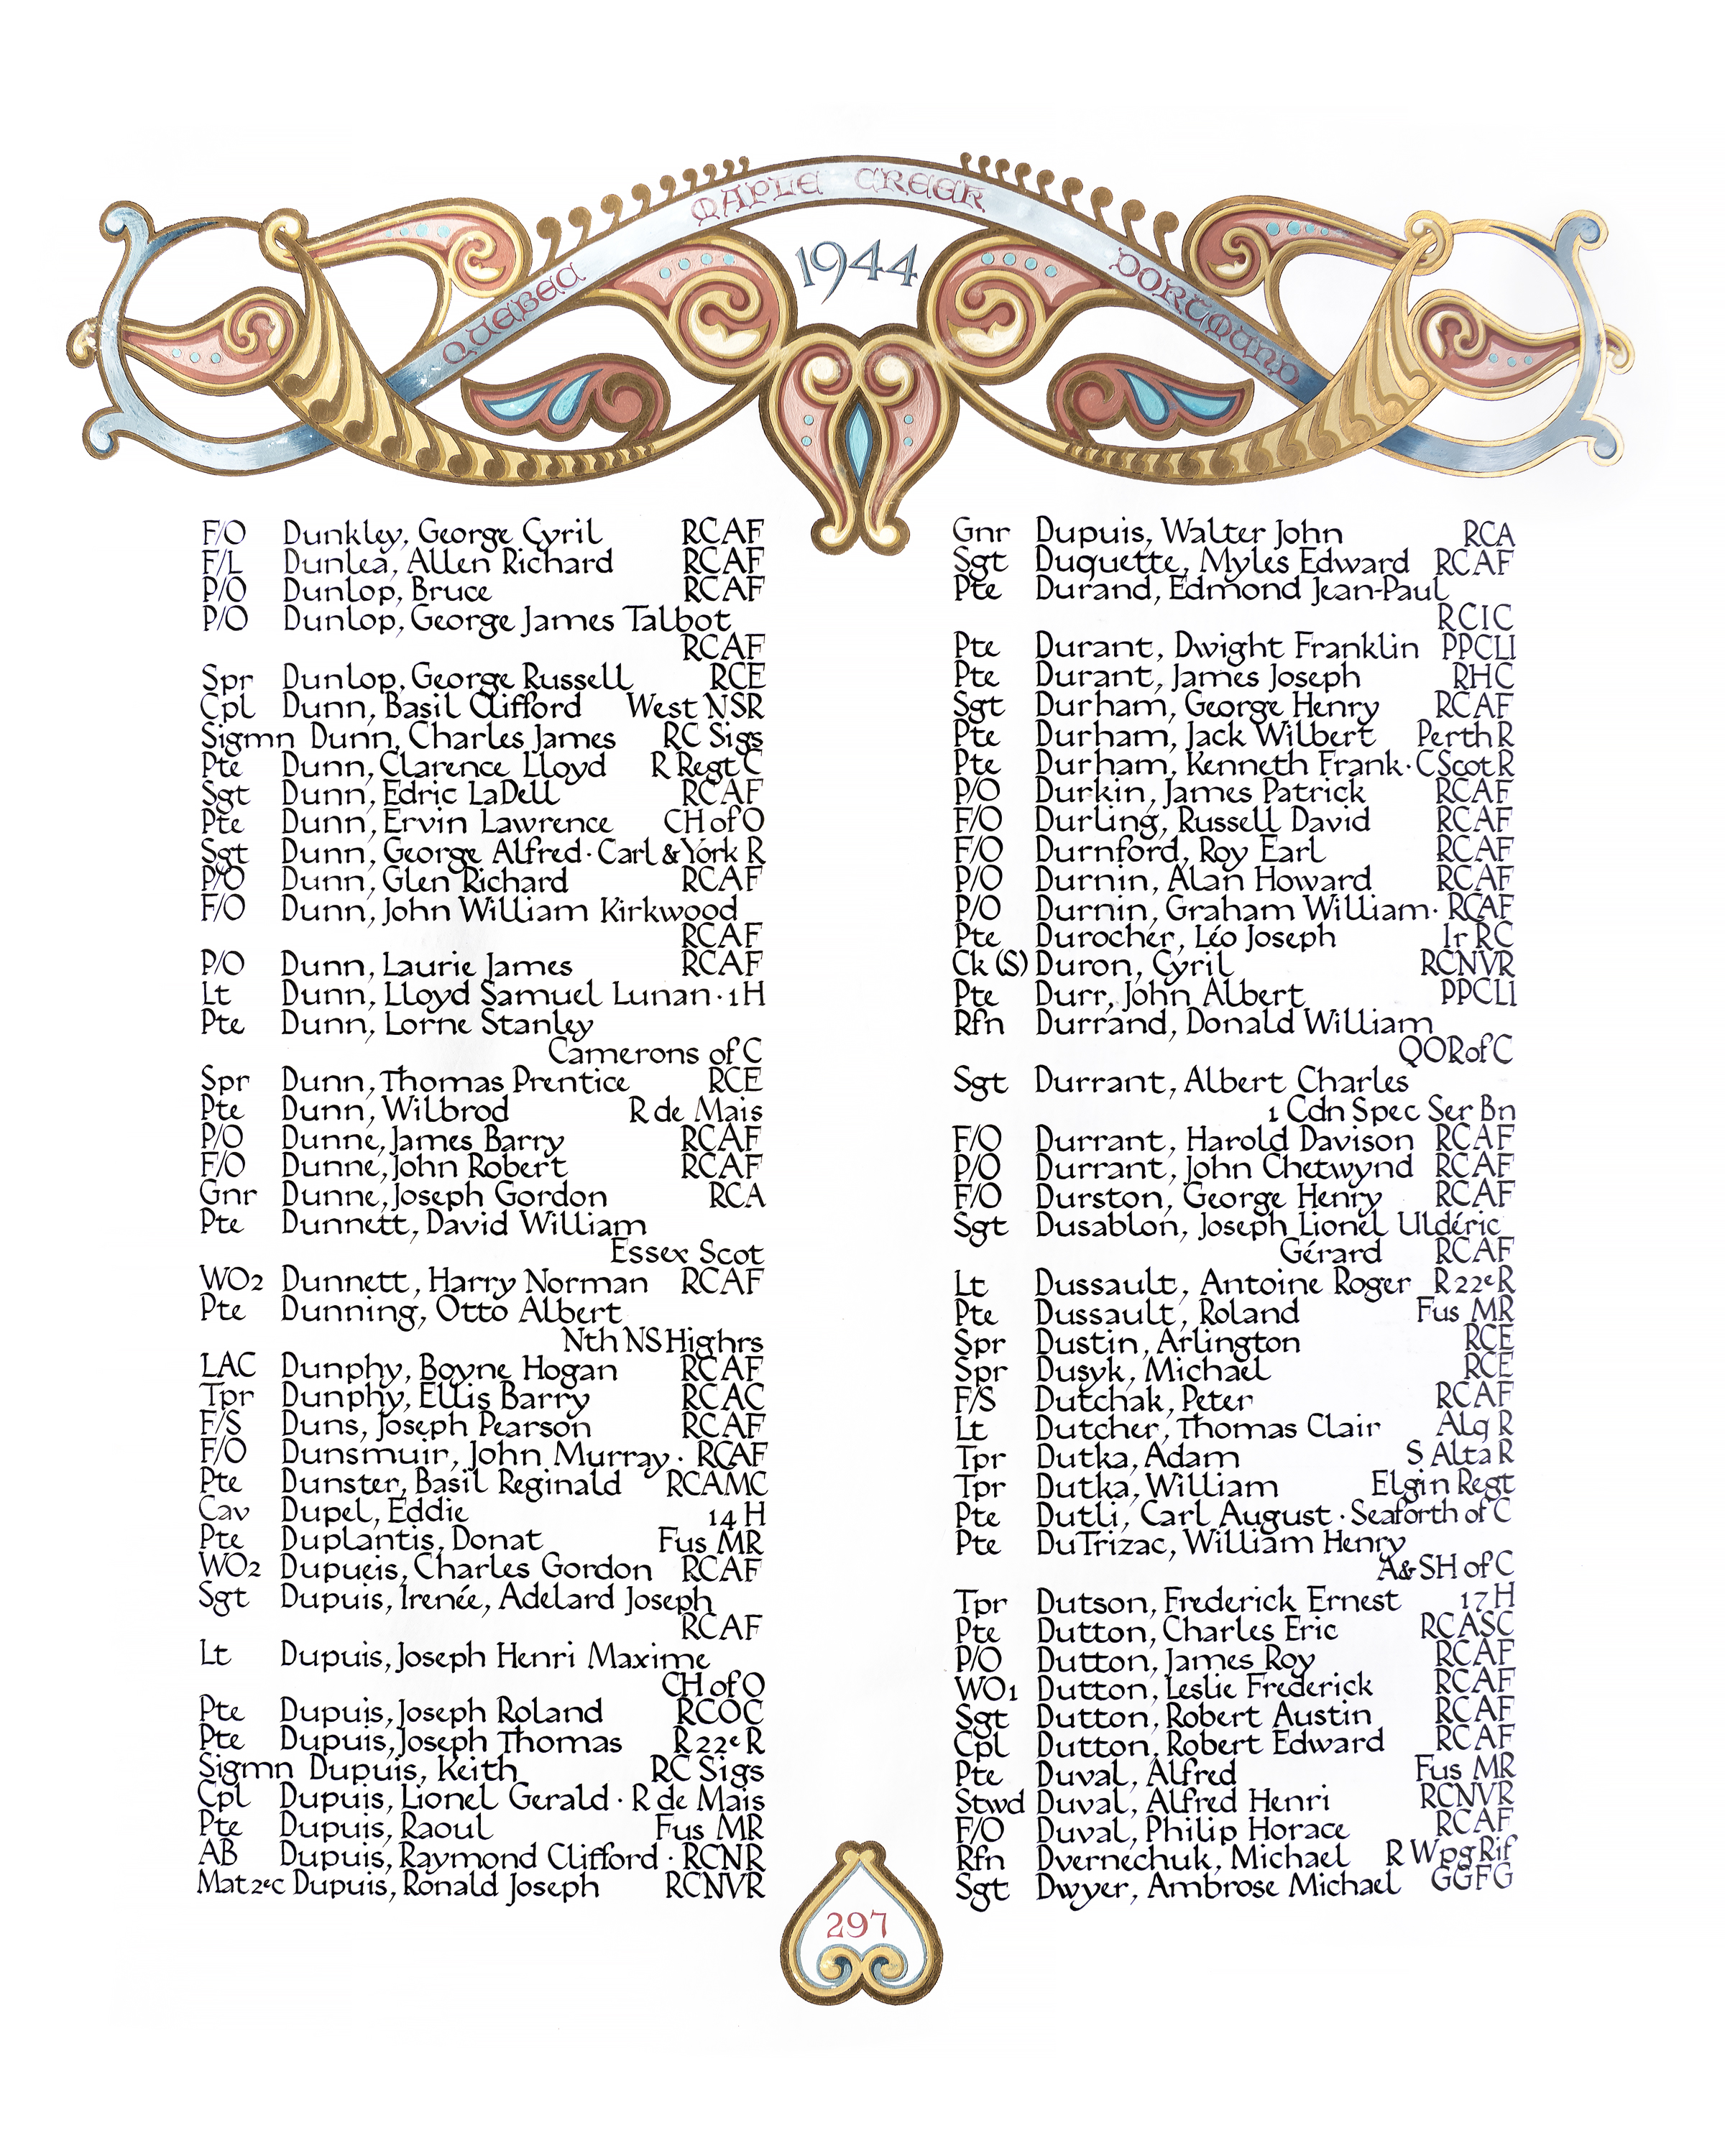 MAPLE CREEK
QUEBEC
1944
DORTMUND
F/O Dunkley, George Cyril RCAF
F/L Dunlea, Allen Richard RCAF
P/O Dunlop, Bruce RCAF
P/O Dunlop, George James Talbot
RCAF
Spr Dunlop, George Russell RCE
Cpl Dunn, Basil Clifford West NSR
Sigmn Dunn, Charles James RC Sigs
Pte Dunn, Clarence Lloyd R Regt C
Sgt Dunn, Edric LaDell RCAF
Pte Dunn, Ervin Lawrence CH of O
Sgt Dunn, George Alfred · Carl & York R
P/O Dunn, Glen Richard RCAF
F/O Dunn, John William Kirkwood
RCAF
P/O Dunn, Laurie James RCAF
Lt Dunn, Lloyd Samuel Lunan · 1 H
Pte Dunn, Lorne Stanley
Camerons of C
Spr Dunn, Thomas Prentice RCE
Pte Dunn, Wilbrod R de Mais
P/O Dunne, James Barry RCAF
F/O Dunne, John Robert RCAF
Gnr Dunne, Joseph Gordon RCA
Pte Dunnett, David William
Essex Scot
WO2 Dunnett, Harry Norman RCAF
Pte Dunning, Otto Albert
Nth NS Highrs
LAC Dunphy, Boyne Hogan RCAF
Tpr Dunphy, Ellis Barry RCAC
F/S Duns, Joseph Pearson RCAF
F/O Dunsmuir, John Murray · RCAF
Pte Dunster, Basil Reginald RCAMC
Cav Dupel, Eddie 14 H
Pte Duplantis, Donat Fus MR
WO2 Dupueis, Charles Gordon RCAF
Sgt Dupuis, Irenée, Adelard Joseph
RCAF
Lt Dupuis, Joseph Henri Maxime
CH of O
Pte Dupuis, Joseph Roland RCOC
Pte Dupuis, Joseph Thomas R 22e R
Sigmn Dupuis, Keith RC Sigs
Cpl Dupuis, Lionel Gerald · R de Mais
Pte Dupuis, Raoul Fus MR
AB Dupuis, Raymond Clifford · RCNR
Mat 2e c Dupuis, Ronald Joseph RCNVR
Gnr Dupuis, Walter John RCA
Sgt Duquette, Myles Edward RCAF
Pte Durand, Edmond Jean-Paul
RCIC
Pte Durant, Dwight Franklin PPCLI
Pte Durant, James Joseph RHC
Sgt Durham, George Henry RCAF
Pte Durham, Jack Wilbert Perth R
Pte Durham, Kenneth Frank · C Scot R
P/O Durkin, James Patrick RCAF
F/O Durling, Russell David RCAF
F/O Durnford, Roy Earl RCAF
P/O Durnin, Alan Howard RCAF
P/O Durnin, Graham William · RCAF
Pte Durocher, Léo Joseph Ir RC
Ck (S) Duron, Cyril RCNVR
Pte Durr, John Albert PPCLI
Rfn Durrand, Donald William
QOR of C
Sgt Durrant, Albert Charles
1 Cdn Spec Ser Bn
F/O Durrant, Harold Davison RCAF
P/O Durrant, John Chetwynd RCAF
F/O Durston, George Henry RCAF
Sgt Dusablon, Joseph Lionel Uldéric
Gérard RCAF
Lt Dussault, Antoine Roger R 22e R
Pte Dussault, Roland Fus MR
Spr Dustin, Arlington RCE
Spr Dusyk, Michael RCE
F/S Dutchak, Peter RCAF
Lt Dutcher, Thomas Clair Alq R
Tpr Dutka, Adam S Alta R
Tpr Dutka, William Elgin Regt
Pte Dutli, Carl August · Seaforth of C
Pte DuTrizac, William Henry
A & SH of C
Tpr Dutson, Frederick Ernest 17 H
Pte Dutton, Charles Eric RCASC
P/O Dutton, James Roy RCAF
WO1 Dutton, Leslie Frederick RCAF
Sgt Dutton, Robert Austin RCAF
Cpl Dutton, Robert Edward RCAF
Pte Duval, Alfred Fus MR
Stwd Duval, Alfred Henri RCNVR
F/O Duval, Philip Horace RCAF
Rfn Dvernechuk, Michael R Wpg Rif
Sgt Dwyer, Ambrose Michael GGFG
297